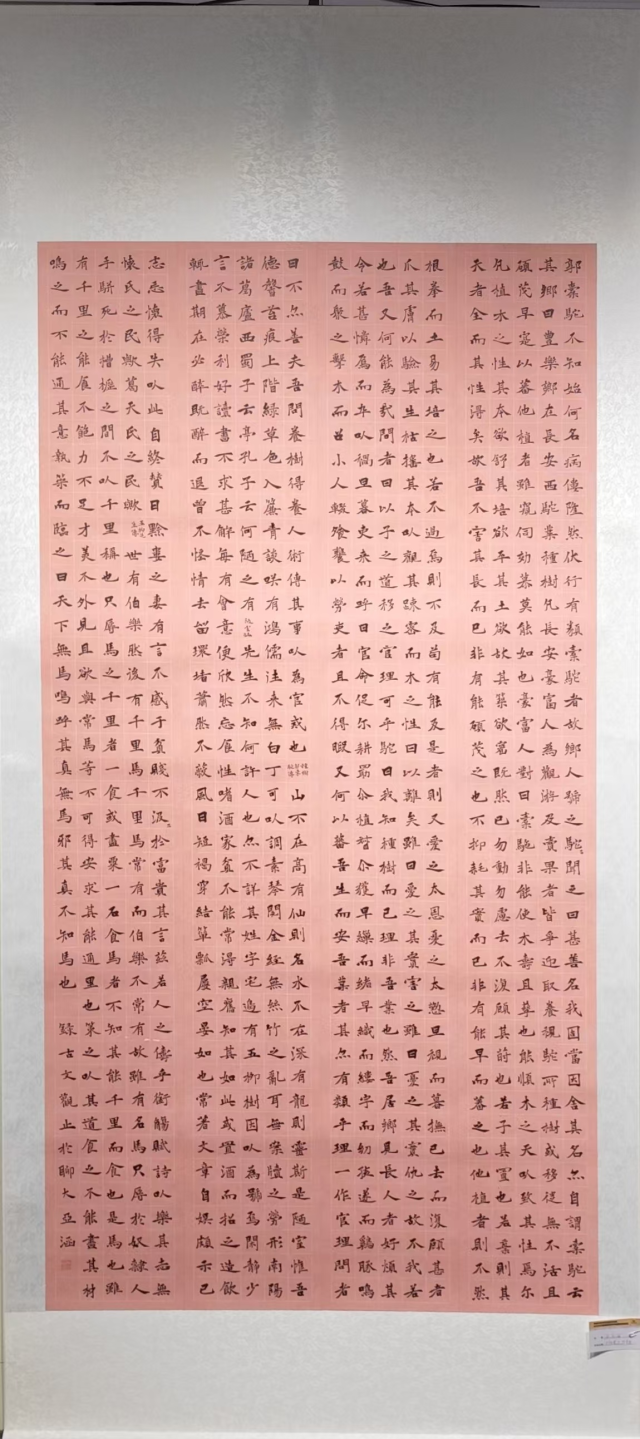 郭橐駝不知始何名病僂隆然伏行有類橐駝者故鄉人號之駝駝聞之曰甚善名我固當因舍其名亦自謂橐駝云
其鄉曰豐樂鄉在長安西駝業種樹凡長安豪富人為觀游及賣果者皆爭迎取養視駝所種樹或移徙無不活且
碩茂早寔以蕃他植者雖窺伺効慕莫能如也對曰橐駝非能使木壽且孳也能順木之天以致其性焉尔
凡植木之性其本欲舒其培欲平其土欲故其築欲密既然已勿動勿慮去不復顧其蒔也若子其置也若棄則其
天者全而其性得矣故吾不害其長而已非有能碩茂之也不抑耗其實而已非有能早而蕃之也他植者則不然
根拳而土易其培之也若不過焉則不及苟有能反是者則又愛之太恩憂之太懃旦視而暮撫已去而復顧甚者
爪其膚以驗其生枯搖其本以觀其疎密而木之性日以離矣雖曰愛之其實害之雖曰憂之其實仇之故不我若
也吾又何能為哉問者曰以子之道移之官理可乎駝曰我知種樹而已理非吾業也然吾居鄉見長人者好煩其
令若甚憐焉而卒以禍旦暮吏來而呼曰官命促尔耕勗尔植督尔穫早繰而緒早織而縷字而幼孩遂而雞豚鳴
鼓而聚之擊木而召小人輟飱饔以勞吏者且不得暇又何以蕃吾生而安吾業者其亦有類乎理一作官理問者
曰不亦善夫吾問養樹得養人術傳其事以為官戒也種樹郭橐駝傳山不在高有仙則名水不在深有龍則靈斯是陋室惟吾
德馨苔痕上階綠草色入簾青談咲有鴻儒往來無白丁可以調素琴閱金經無絲竹之亂耳無案牘之勞形南陽
諸葛廬西蜀子云亭孔子云何陋之有陋室銘先生不知何許人也亦不詳其姓字宅邊有五柳樹因以為號焉閑靜少
言不慕榮利好讀書不求甚解每有會意便欣然忘食性嗜酒家貧不能常得親舊知其如此或置酒而招之造飲
輒盡期在必醉既醉而退曾不恡情去留環堵蕭然不蔽風日短褐穿結簞瓢屢空晏如也常著文章自娛頗示己
志忘懷得失以此自終贊曰黔婁之妻有言不戚于貧賤不汲汲於富貴其言茲若人之儔乎銜觴賦詩以樂其志無
懷氏之民歟葛天氏之民歟五柳先生傳世有伯樂然後有千里馬千里馬常有而伯樂不常有故雖有名馬只辱於奴隸人
手駢死於槽櫪之間不以千里稱也馬之千里者一食或盡粟一石食馬者不知其能千里而食也是馬也雖
有千里之能食不飽力不足才美不外見且欲與常馬等不可得安求其能千里也策之不以其道食之不能盡其材
鳴之而不能通其意執策而臨之曰天下無馬嗚呼其真無馬邪其真不知馬也 錄古文觀止於聊大亞涵